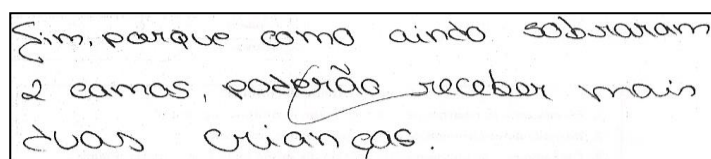 Sim, porque como ainda sobraram
2 camas, poderão receber mais
duas crianças.